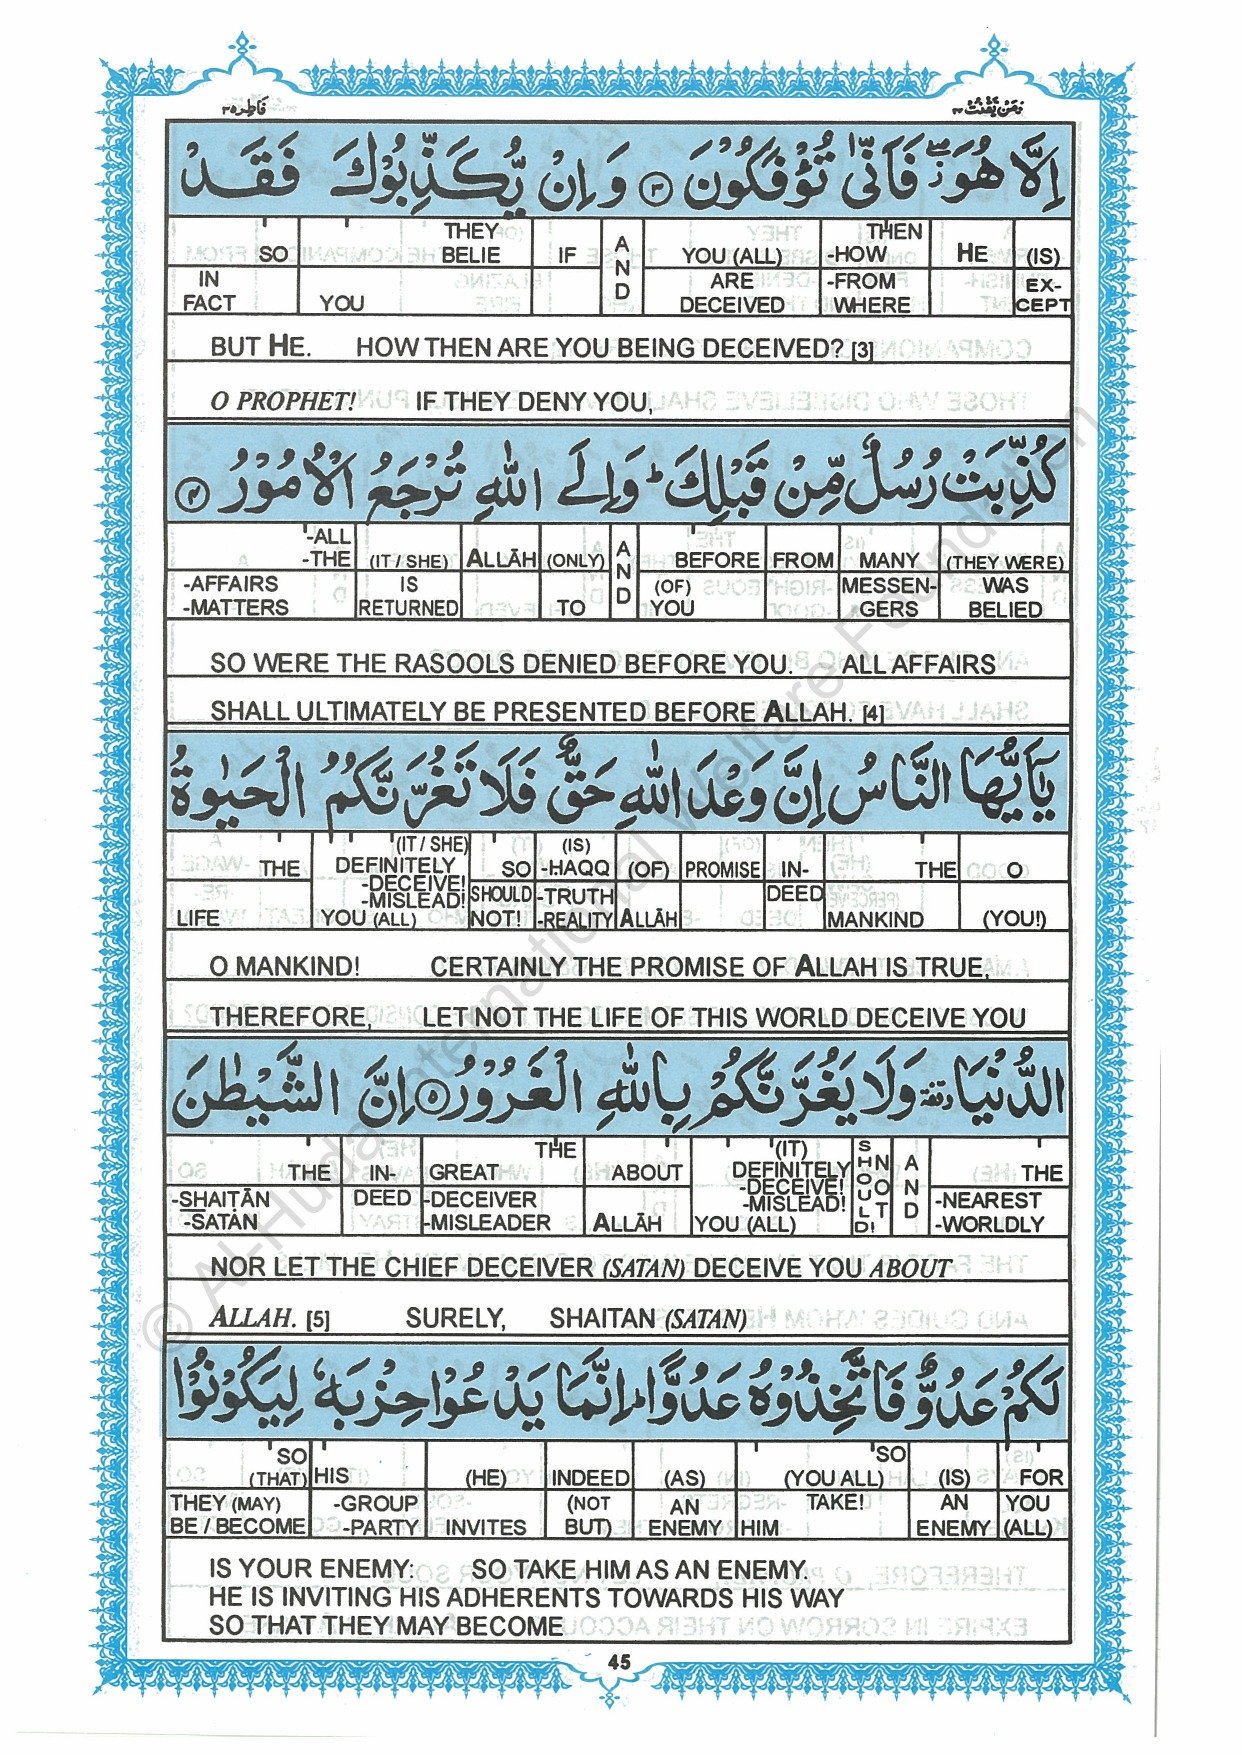 فاطر ٣٥
ومن يقنت ٢٢
اِلَّا هُوَ ۖ فَاَنّٰى تُؤْفَكُوْنَ ﴿٣﴾ وَاِنْ يُّكَذِّبُوْكَ فَقَدْ
SO THEY BELIE IF AND YOU (ALL) THEN -HOW HE (IS)
IN FACT YOU ARE DECEIVED -FROM WHERE EX-CEPT
BUT HE. HOW THEN ARE YOU BEING DECEIVED? [3]
O PROPHET! IF THEY DENY YOU,
كُذِّبَتْ رُسُلٌ مِّنْ قَبْلِكَ ؕ وَاِلَى اللّٰهِ تُرْجَعُ الْاُمُوْرُ ﴿٤﴾
-ALL -THE (IT / SHE) ALLĀH (ONLY) AND BEFORE FROM MANY (THEY WERE)
-AFFAIRS -MATTERS IS RETURNED TO (OF) YOU MESSEN-GERS WAS BELIED
SO WERE THE RASOOLS DENIED BEFORE YOU. ALL AFFAIRS
SHALL ULTIMATELY BE PRESENTED BEFORE ALLAH. [4]
يٰۤاَيُّهَا النَّاسُ اِنَّ وَعْدَ اللّٰهِ حَقٌّ فَلَا تَغُرَّنَّكُمُ الْحَيٰوةُ
THE (IT / SHE) DEFINITELY -DECEIVE! -MISLEAD! SO (IS) -HAQQ (OF) PROMISE IN- THE O
LIFE YOU (ALL) SHOULD NOT! -TRUTH -REALITY ALLĀH DEED MANKIND (YOU!)
O MANKIND! CERTAINLY THE PROMISE OF ALLAH IS TRUE,
THEREFORE, LET NOT THE LIFE OF THIS WORLD DECEIVE YOU
الدُّنْيَا ۥ وقفة وَلَا يَغُرَّنَّكُمْ بِاللّٰهِ الْغَرُوْرُ ﴿٥﴾ اِنَّ الشَّيْطٰنَ
THE IN- THE GREAT ABOUT (IT) DEFINITELY -DECEIVE! -MISLEAD! SHOULD NOT! AND THE
-SHAIṬĀN -SATAN DEED -DECEIVER -MISLEADER ALLĀH YOU (ALL) -NEAREST -WORLDLY
NOR LET THE CHIEF DECEIVER (SATAN) DECEIVE YOU ABOUT
ALLAH. [5] SURELY, SHAITAN (SATAN)
لَكُمْ عَدُوٌّ فَاتَّخِذُوْهُ عَدُوًّا ؕ اِنَّمَا يَدْعُوْا حِزْبَهٗ لِيَكُوْنُوْا
SO (THAT) HIS (HE) INDEED (AS) SO (YOU ALL) (IS) FOR
THEY (MAY) BE / BECOME -GROUP -PARTY INVITES (NOT BUT) AN ENEMY HIM TAKE! AN ENEMY YOU (ALL)
IS YOUR ENEMY: SO TAKE HIM AS AN ENEMY.
HE IS INVITING HIS ADHERENTS TOWARDS HIS WAY
SO THAT THEY MAY BECOME
45
© Al-Huda International Welfare Foundation